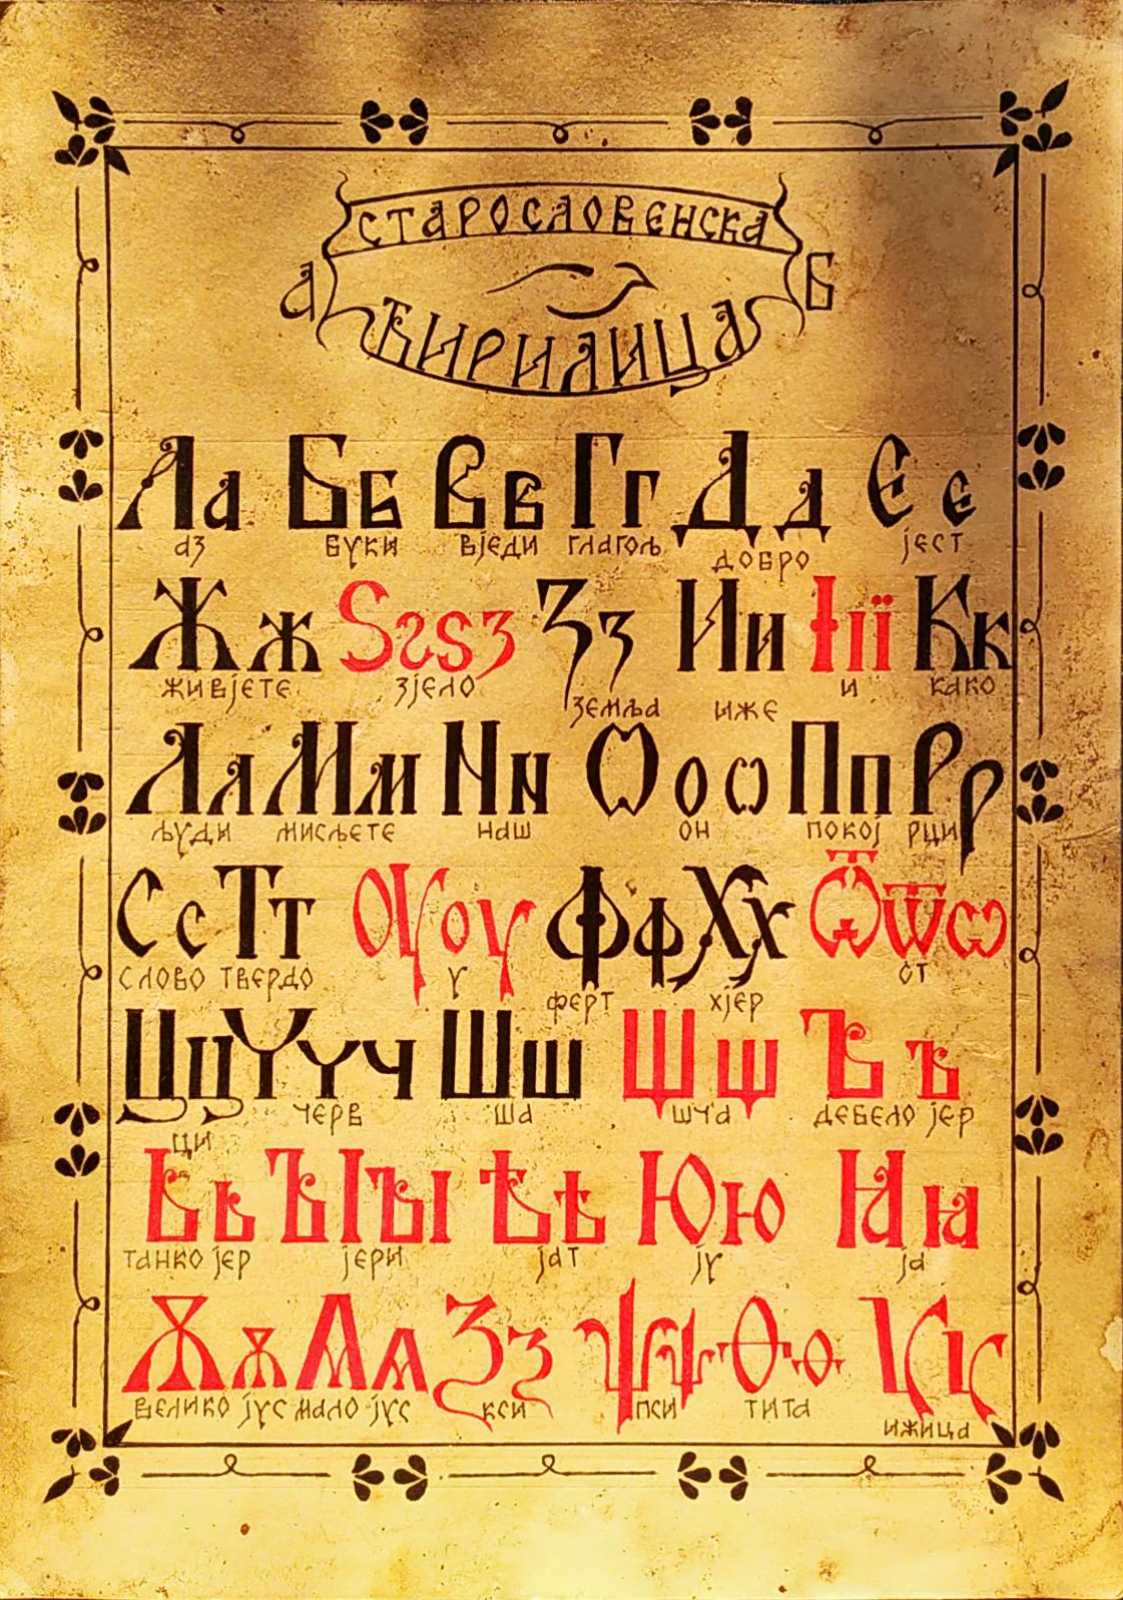 СТАРОСЛОВЕНСКА
А Б
ЋИРИЛИЦА
Аа Бб Вв Гг Дд Єє
аз буки вједи глагољ добро јест
Жж Ѕꙅѕз Зз Ии Іії Кк
живјете зјело земља иже и како
Лл Мм Nн Ѡоѡ Пп Рр
људи мисљете наш он покој рци
Сс Тт Оуоу Фф Хх Ѿѿѡ
слово твердо у ферт хјер от
Цц Ччч Шш Щщ Ъъ
ци черв ша шча дебело јер
Ьь ЪІъı Ѣѣ Юю Ꙗꙗ
танко јер јери јат ју ја
Ѫѫ Ѧѧ Ѯѯ Ѱѱ Ѳѳ Ѵѵ
велико јус мало јус кси пси тита ижица